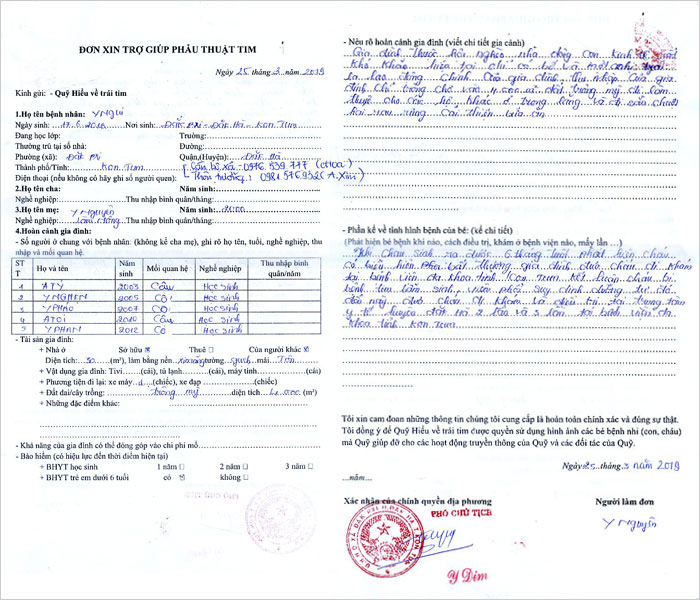 ĐƠN XIN TRỢ GIÚP PHẪU THUẬT TIM
Ngày 25 tháng 3 năm 2019
Kính gửi: - Quỹ Hiểu về trái tim
1.Họ tên bệnh nhân: Y NGUI
Ngày sinh: 17.6.2018 Nơi sinh: ĐĂK PXI - ĐĂK HÀ - Kon Tum
Đang học lớp: Trường:
Thường trú tại số nhà: Đường:
Phường (xã): ĐĂK PXI Quận,(Huyện): ĐĂK HÀ
Thành phố/Tỉnh: Kon Tum Cán bộ xã: 0976.539.777 (A Hoa)
Điện thoại (nếu không có hãy ghi số người quen): Thôn trưởng: 0981.576.932 (A. Xiu)
2.Họ tên cha: Năm sinh:
Nghề nghiệp: Thu nhập bình quân/tháng:
3.Họ tên mẹ: Y Nguyên Năm sinh:
Nghề nghiệp: Làm nông Thu nhập bình quân/tháng:
4.Hoàn cảnh gia đình:
- Số người ở chung với bệnh nhân: (không kể cha mẹ), ghi rõ họ tên, tuổi, nghề nghiệp, thu
nhập và mối quan hệ.
STT Họ và tên Năm sinh Mối quan hệ Nghề nghiệp Thu nhập bình quân/năm
1 A TÝ 2003 Cậu Học sinh
2 Y NGHEN 2005 Cô Học sinh
3 Y PHAO 2007 Cô Học sinh
4 A TOI 2010 Cậu Học sinh
5 Y PHAN 2012 Cô Học sinh
- Tài sản gia đình:
+ Nhà ở Sở hữu Thuê Của người khác
Diện tích: 30 (m²), làm bằng nền xi măng tường gạch mái Tôn
+ Vật dụng gia đình: Tivi (cái), tủ lạnh (cái), máy tính (cái)
+ Phương tiện đi lại: xe máy 1 (chiếc), xe đạp (chiếc)
+ Đất đai/cây trồng: trồng mỳ diện tích 4.000 (m²)
+ Những đặc điểm khác:
- Khả năng của gia đình có thể đóng góp vào chi phí mổ
- Bảo hiểm (có hiệu lực đến thời điểm hiện tại)
+ BHYT học sinh 1 năm 2 năm 3 năm
+ BHYT trẻ em dưới 6 tuổi có không
- Nêu rõ hoàn cảnh gia đình (viết chi tiết gia cảnh)
Gia đình thuộc hộ nghèo, nhà đông con kinh tế rất
khó khăn, hiện tại chỉ có bố và một anh trai
là lao động chính của gia đình, thu nhập của gia
đình chỉ trông chờ vào 4 sào mì đi làm
thuê cho các hộ khác ở trong làng và đi săn chuột
hái rau rừng cải thiện bữa ăn
- Phần kể về tình hình bệnh của bé: (kể chi tiết)
(Phát hiện bé bệnh khi nào, cách điều trị, khám ở bệnh viện nào, mấy lần ...)
Khi cháu sinh ra được 6 tháng tuổi phát hiện cháu
có biểu hiện bất thường gia đình đưa cháu đi khám
tại bệnh viện đa khoa tỉnh Kon Tum kết luận cháu bị
bệnh tim bẩm sinh, viêm phổi suy dinh dưỡng từ đó
đến nay đưa cháu đi khám và điều trị tại trung tâm
y tế huyện đăk hà 2 lần và 3 lần tại bệnh viện đa
khoa tỉnh Kon Tum
Tôi xin cam đoan những thông tin chúng tôi cung cấp là hoàn toàn chính xác và đúng sự thật.
Tôi đồng ý để Quỹ Hiểu về trái tim được quyền sử dụng hình ảnh các bé bệnh nhi (con, cháu)
mà Quỹ giúp đỡ cho các hoạt động truyền thông của Quỹ và các đối tác của Quỹ.
Ngày 25 tháng 3 năm 2019
...năm...
Xác nhận của chính quyền địa phương Người làm đơn
PHÓ CHỦ TỊCH
Y Nguyên
Y Dim